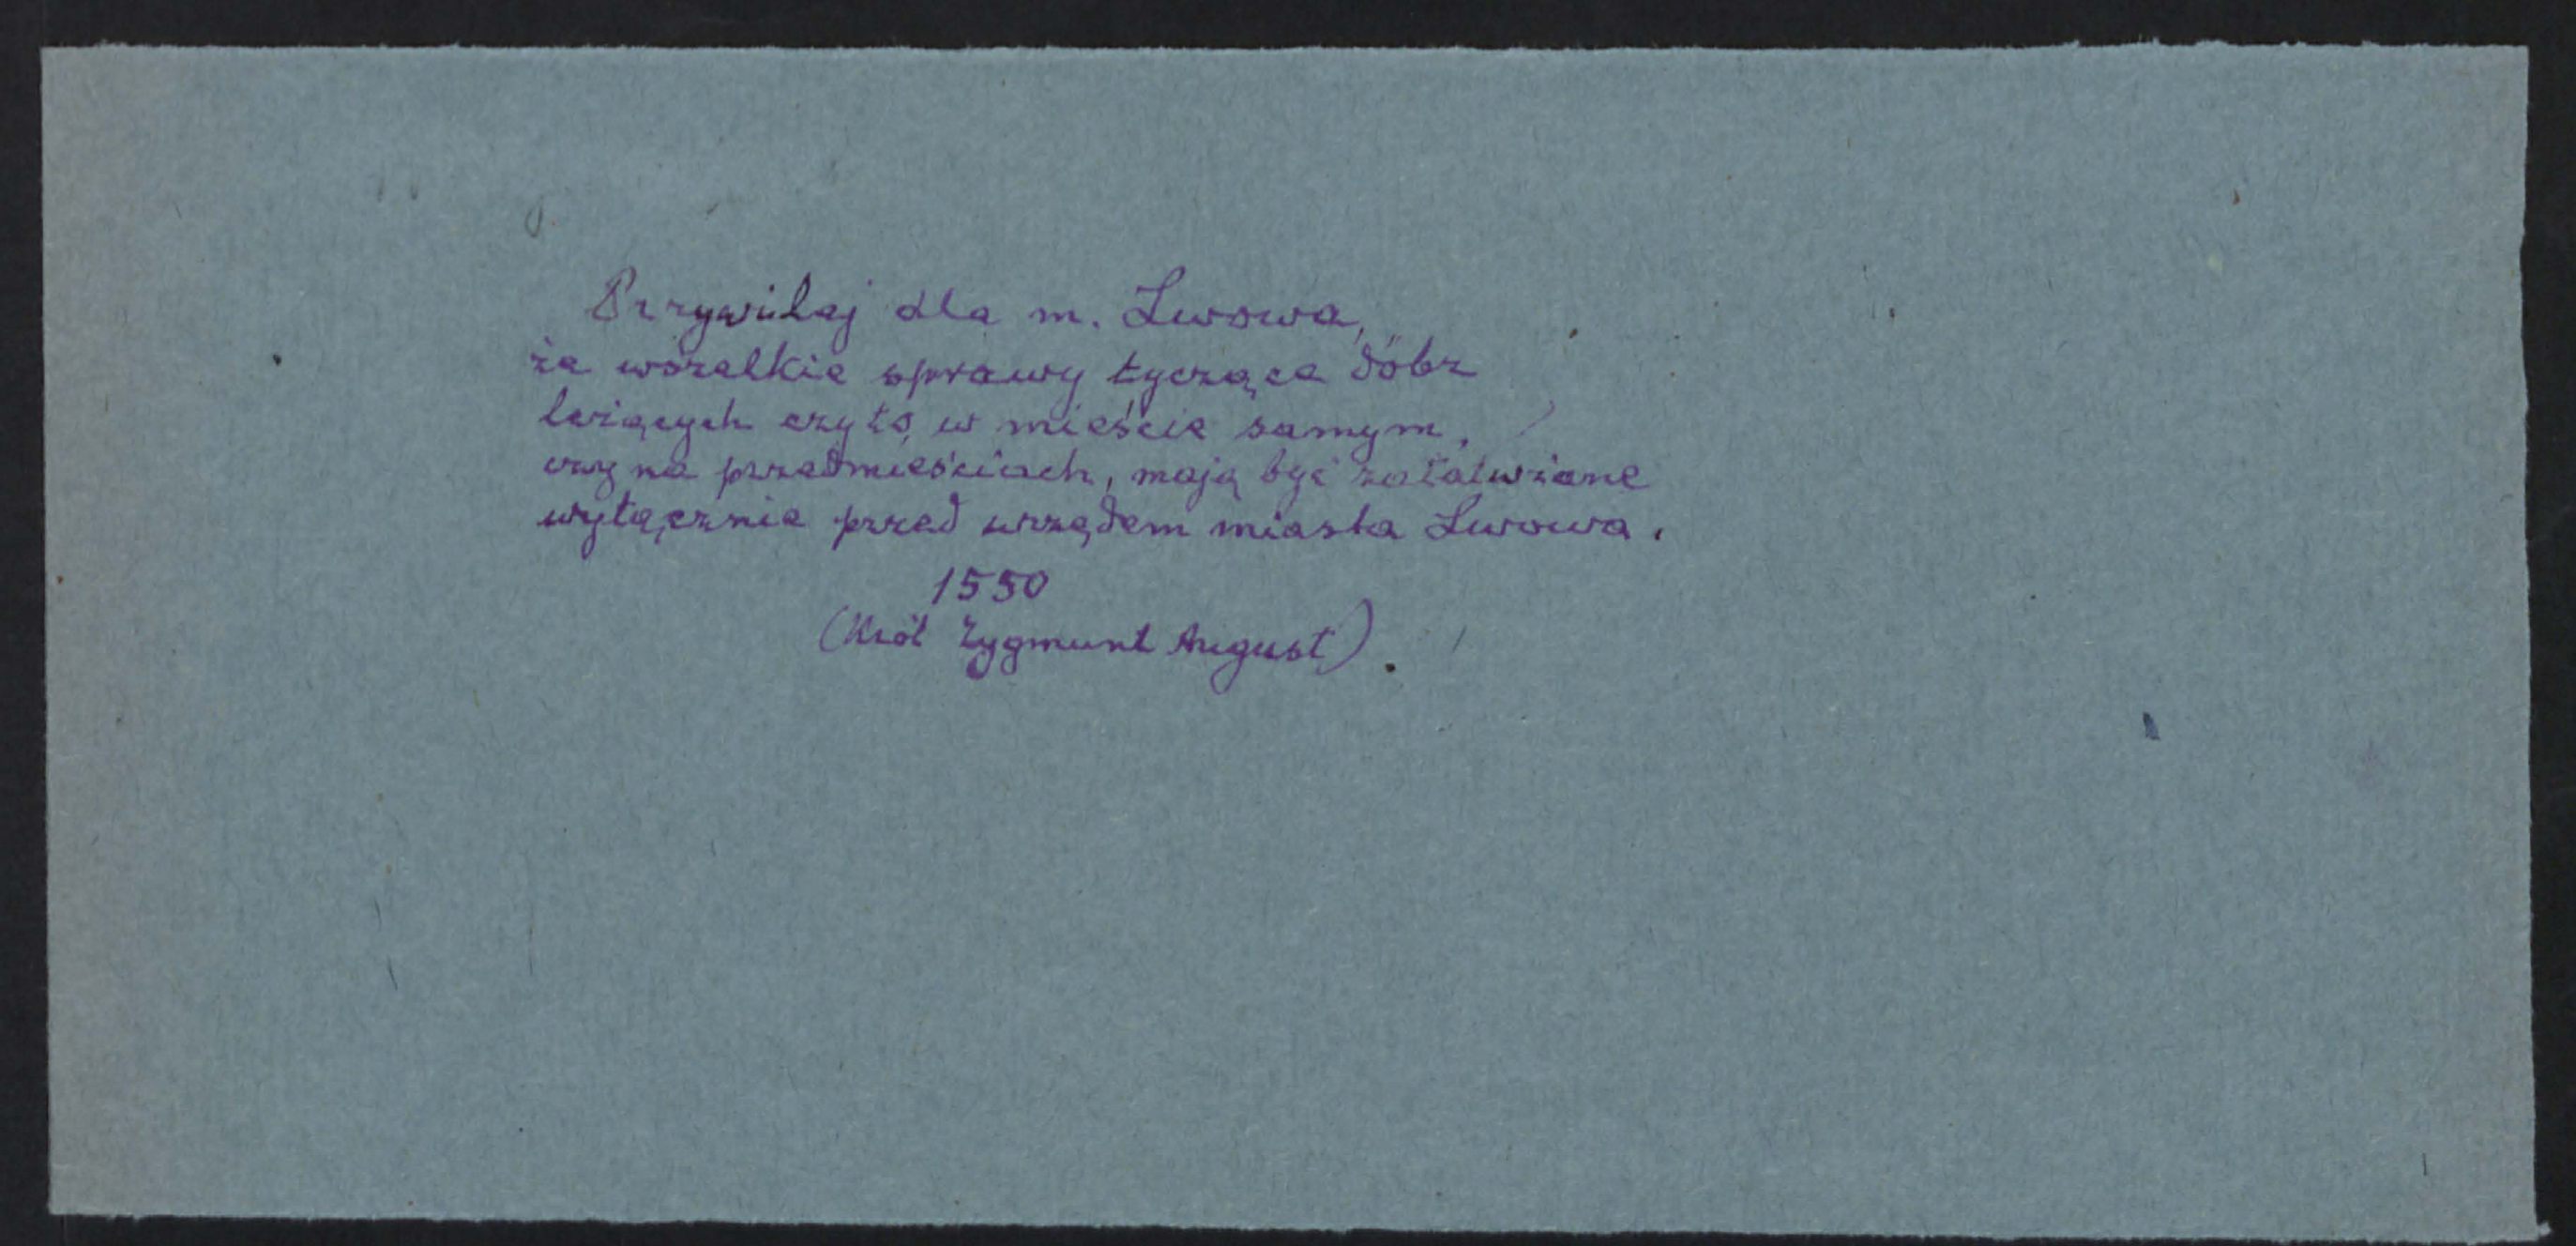 Przywilej dla m. Lwowa,
że wszelkie sprawy tyczące dóbr
leżących czyto w mieście samym,
czy na przedmieściach, mają być załatwiane
wyłącznie przed urzędem miasta Lwowa.
1550
(Król Zygmunt August).